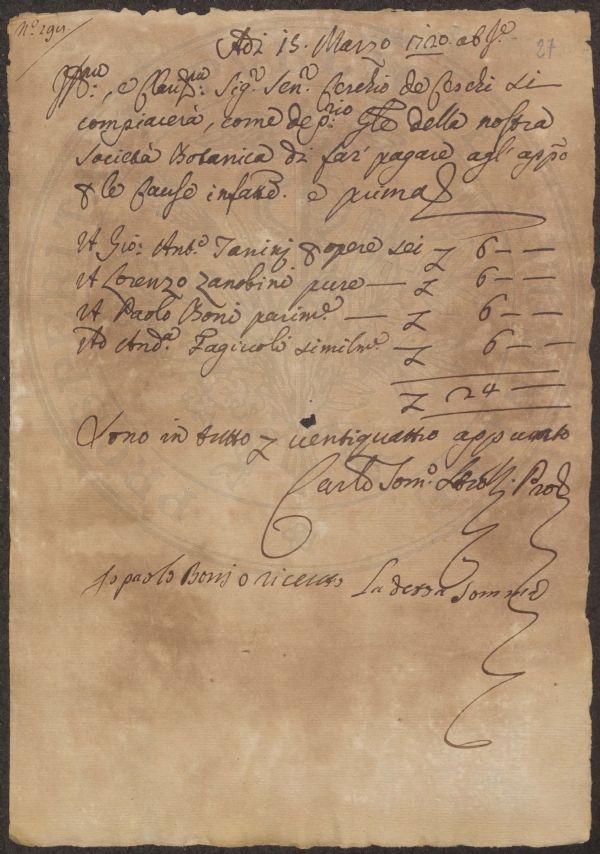 Adì 15. Marzo 1720. ab Je.
27
Ill.mo, e Clar.mo Sig.r Sen.r Cerchio de Cerchi si
compiacerà, come dep.rio Gle della nostra
Società Botanica di far' pagare agl' app.o
le Cause infatte. e prima
A Gio: Ant.o Tanini opere sei — 6 — —
A Lorenzo Zanobini pure — 6 — —
A Paolo Boni parim.e — 6 — —
Ad And.a Fagiuoli similm.e — 6 — —
24 —
Sono in tutto ventiquattro appunto
Carlo Tom.o
Io paolo Bonj o riceuto La detta somma